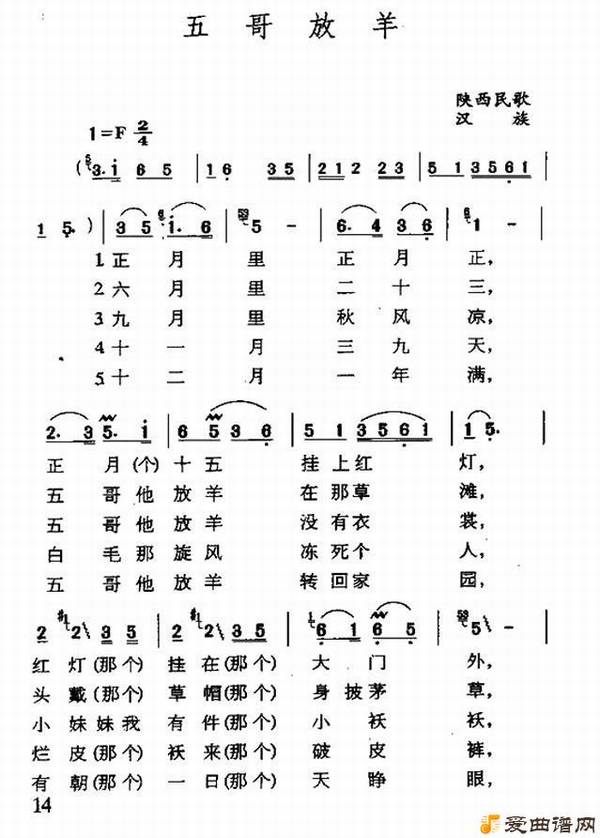 五哥放羊
陕西民歌
汉族
1=F 2/4
(3·1 6 5 | 1 6 3 5 | 2 1 2 2 3 | 5 1 3 5 6 1 |
1 5·) | 3 5 1·6 | 5 - | 6·4 3 6 | 1 - |
1.正月里正月正,
2.六月里二十三,
3.九月里秋风凉,
4.十一月三九天,
5.十二月一年满,
2·3 5·1 | 6 5 3 6 | 5 1 3 5 6 1 | 1 5· |
正月(个)十五挂上红灯,
五哥他放羊在那草滩,
五哥他放羊没有衣裳,
白毛那旋风冻死个人,
五哥他放羊转回家园,
2 2 3 5 | 2 2 3 5 | 6 1 6 5 | 5 - |
红灯(那个)挂在(那个)大门外,
头戴(那个)草帽(那个)身披茅草,
小妹妹我有件(那个)小袄袄,
烂皮(那个)袄来(那个)破皮裤,
有朝(那个)一日(那个)天睁眼,
14
爱曲谱网